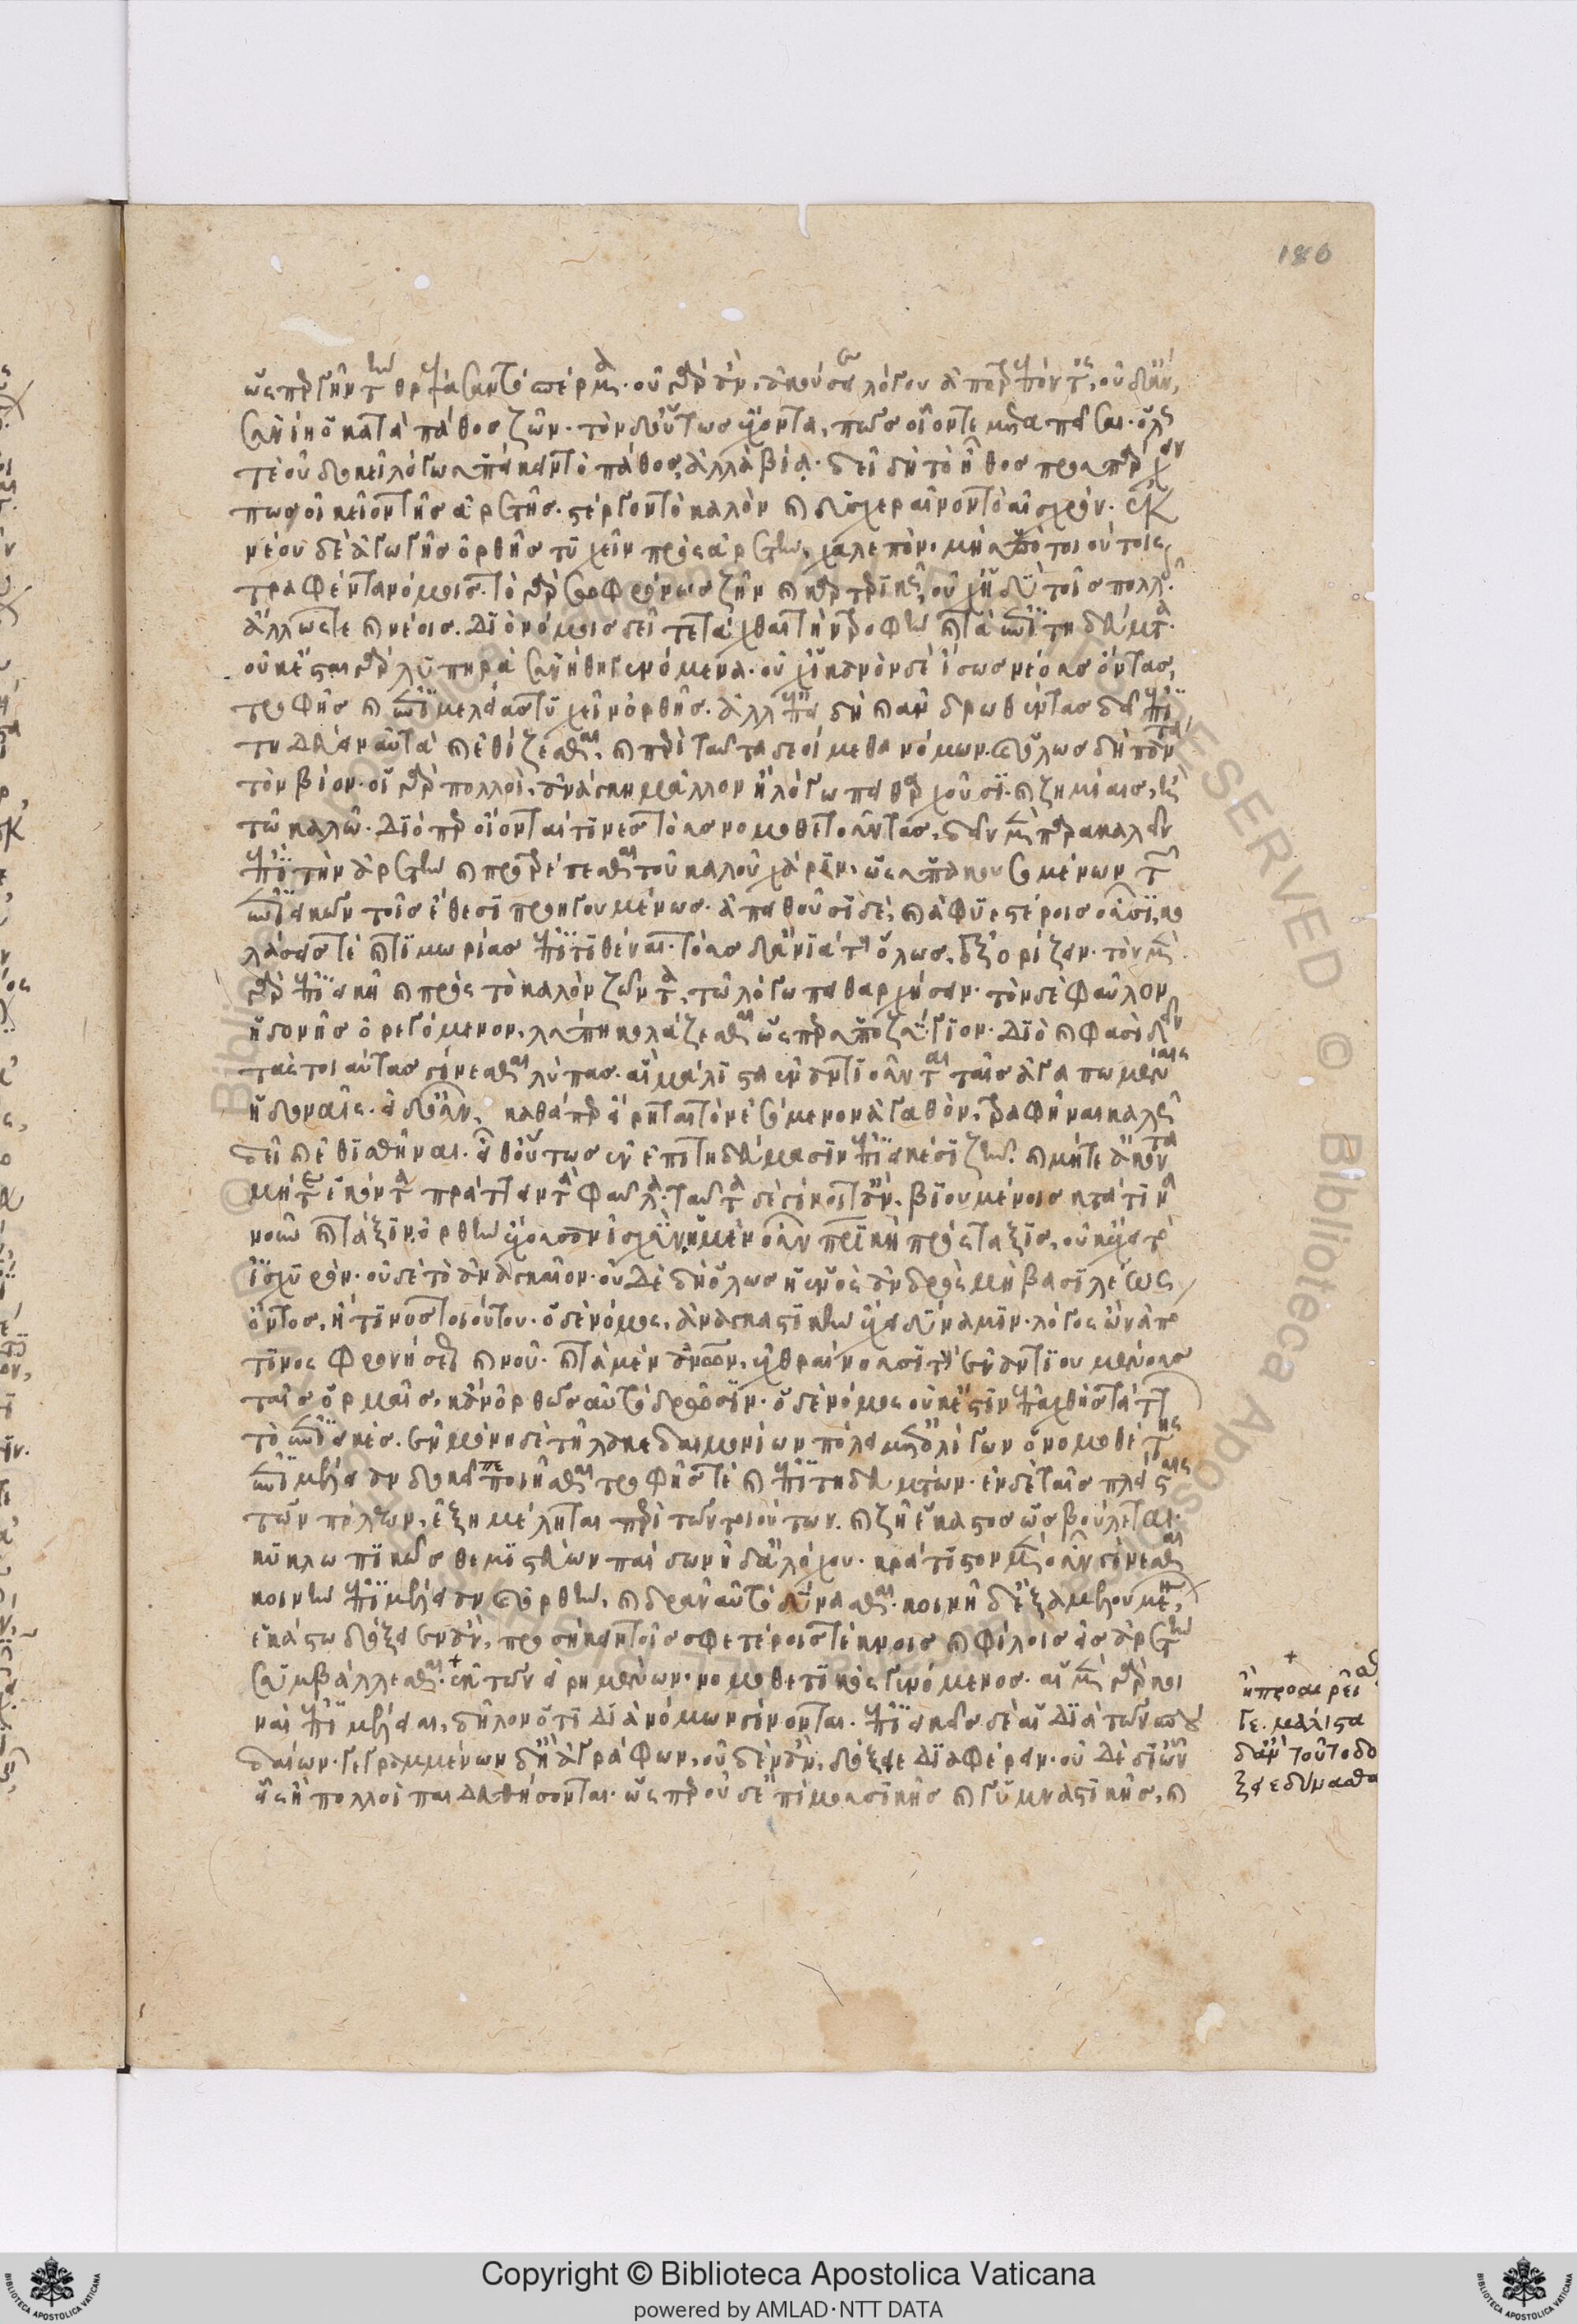 180
ὥσπερ γῆν τὴν θρέψουσαν τὸ σπέρμα. οὐ γὰρ ἂν ἀκούσειε λόγου ἀποτρέποντος, οὐδ' ἂν
συνείη ὁ κατὰ πάθος ζῶν. τὸν δ' οὕτως ἔχοντα, πῶς οἷόν τε μεταπεῖσαι. ὅλως
τε οὐ δοκεῖ λόγω ὑπείκειν τὸ πάθος, ἀλλὰ βία. δεῖ δὴ τὸ ἦθος προυπάρχειν
πως οἰκεῖον τῆς ἀρετῆς. στέργον τὸ καλὸν καὶ δυσχεραῖνον τὸ αἰσχρόν. ἐκ
νέου δὲ ἀγωγῆς ὀρθῆς τυχεῖν πρὸς ἀρετὴν, χαλεπὸν. μὴ ὑπὸ τοιούτοις
τραφέντα νόμοις. τὸ γὰρ σωφρόνως ζῆν καὶ καρτερικῶς, οὐχ ἡδὺ τοῖς πολλοῖς.
ἄλλως τε καὶ νέοις. διὸ νόμοις δεῖ τετάχθαι τὴν τροφὴν καὶ τὰ ἐπιτηδεύματα.
οὐκ ἔσται γὰρ λυπηρὰ συνήθη γενόμενα. οὐχ ἱκανὸν δὲ ἴσως νέους ὄντας,
τροφῆς καὶ ἐπιμελείας τυχεῖν ὀρθῆς. ἀλλ' ἐπειδὴ καὶ ἀνδρωθέντας δεῖ ἐπι
τηδεύειν αὐτὰ καὶ ἐθίζεσθαι, καὶ περὶ ταῦτα δεοίμεθα νόμων. καὶ ὅλως δὴ περὶ πάντα
τὸν βίον. οἱ γὰρ πολλοὶ, ἀνάγκη μᾶλλον ἢ λόγω πειθαρχοῦσι. καὶ ζημίαις, ἢ
τῶ καλῶ. διόπερ οἴονταί τινες τοὺς νομοθετοῦντας, δεῖν μὲν παρακαλεῖν
ἐπὶ τὴν ἀρετὴν καὶ προτρέπεσθαι τοῦ καλοῦ χάριν, ὡς ὑπακουσομένων τῶν
ἐπιεικῶν τοῖς ἔθεσι προηγουμένως. ἀπειθοῦσι δὲ, καὶ ἀφυεστέροις οὖσι, κο
λάσεις τὲ καὶ τιμωρίας ἐπιτιθέναι. τοὺς δ' ἀνιάτους ὅλως, ἐξορίζειν. τὸν μὲν
γὰρ ἐπιεικῆ καὶ πρὸς τὸ καλὸν ζῶντα, τῶ λόγω πειθαρχήσειν. τὸν δὲ φαῦλον
ἡδονῆς ὀρεγόμενον, λύπη κολάζεσθαι ὥσπερ ὑποζύγιον. διὸ καὶ φασὶ δεῖν
τὰς τοιαύτας γίνεσθαι λύπας. αἳ μάλιστα ἐναντιοῦνται ταῖς ἀγαπωμέναις
ἡδοναῖς. εἰ δ' οὖν, καθάπερ εἴρηται τὸν ἐσόμενον ἀγαθὸν, τραφῆναι καλῶς
δεῖ καὶ ἐθισθῆναι. εἶθ' οὕτως ἐν ἐπιτηδεύμασιν ἐπιεικέσι ζῆν. καὶ μήτε ἄκοντα
μήτε ἑκόντα πράττειν τὰ φαῦλα. ταῦτα δὲ γίνοιτ' ἂν, βιουμένοις κατά τινα
νοῦν καὶ τάξιν ὀρθὴν ἔχουσαν ἰσχύν. ἡ μὲν οὖν πατρικὴ πρόσταξις, οὐκ ἔχει τὸ
ἰσχυρὸν. οὐδὲ τὸ ἀναγκαῖον. οὐδὲ δὴ ὅλως ἡ ἑνὸς ἀνδρὸς μὴ βασιλέως
ὄντος, ἤ τινος τοιούτου. ὁ δὲ νόμος, ἀναγκαστικὴν ἔχει δύναμιν. λόγος ὢν ἀπό
τινος φρονήσεως καὶ νοῦ. καὶ τὰ μὲν ἀνθρώπων, ἐχθραίνουσι τοὺς ἐναντιουμένους
ταῖς ὁρμαῖς, κἂν ὀρθῶς αὐτὸ δρῶσιν. ὁ δὲ νόμος οὐκ ἔστιν ἐπαχθὴς τάττων
τὸ ἐπιεικές. ἐν μόνη δὲ τῆ λακεδαιμονίων πόλει μετ' ὀλίγων ὁ νομοθέτης
ἐπιμέλειαν δοκεῖ πεποιῆσθαι τροφῆς τὲ καὶ ἐπιτηδευμάτων. ἐν δὲ ταῖς πλείσταις
τῶν πόλεων, ἐξημέληται περὶ τῶν τοιούτων. καὶ ζῆ ἕκαστος ὡς βούλεται.
κυκλωπικῶς θεμιστεύων παίδων ἠδ' ἀλόχου. κράτιστον μὲν οὖν γίνεσθαι
κοινὴν ἐπιμέλειαν καὶ ὀρθὴν, καὶ δρᾶν αὐτὸ δύνασθαι. κοινῆ δ' ἐξαμελουμένων,
ἑκάστω δόξειεν ἂν, προσήκειν τοῖς σφετέροις τέκνοις καὶ φίλοις εἰς ἀρετὴν
συμβάλλεσθαι. ἐκ τῶν εἰρημένων. νομοθετικὸς γενόμενος. αἱ μὲν γὰρ κοι
ναὶ ἐπιμέλειαι, δῆλον ὅτι διὰ νόμων γίνονται. ἐπιεικεῖς δὲ αἱ διὰ τῶν σπου
δαίων. γεγραμμένων δ' ἢ ἀγράφων, οὐδὲν ἂν, δόξειε διαφέρειν. οὐδὲ δι' ὧν
εἷς ἢ πολλοὶ παιδευθήσονται. ὥσπερ οὐδ' ἐπὶ μουσικῆς καὶ γυμναστικῆς, καὶ
ἢ προαιρεῖσθαι
γε. μάλιστα
δ' ἂν τοῦτο δό
ξειε δύνασθαι
Copyright © Biblioteca Apostolica Vaticana
powered by AMLAD·NTT DATA